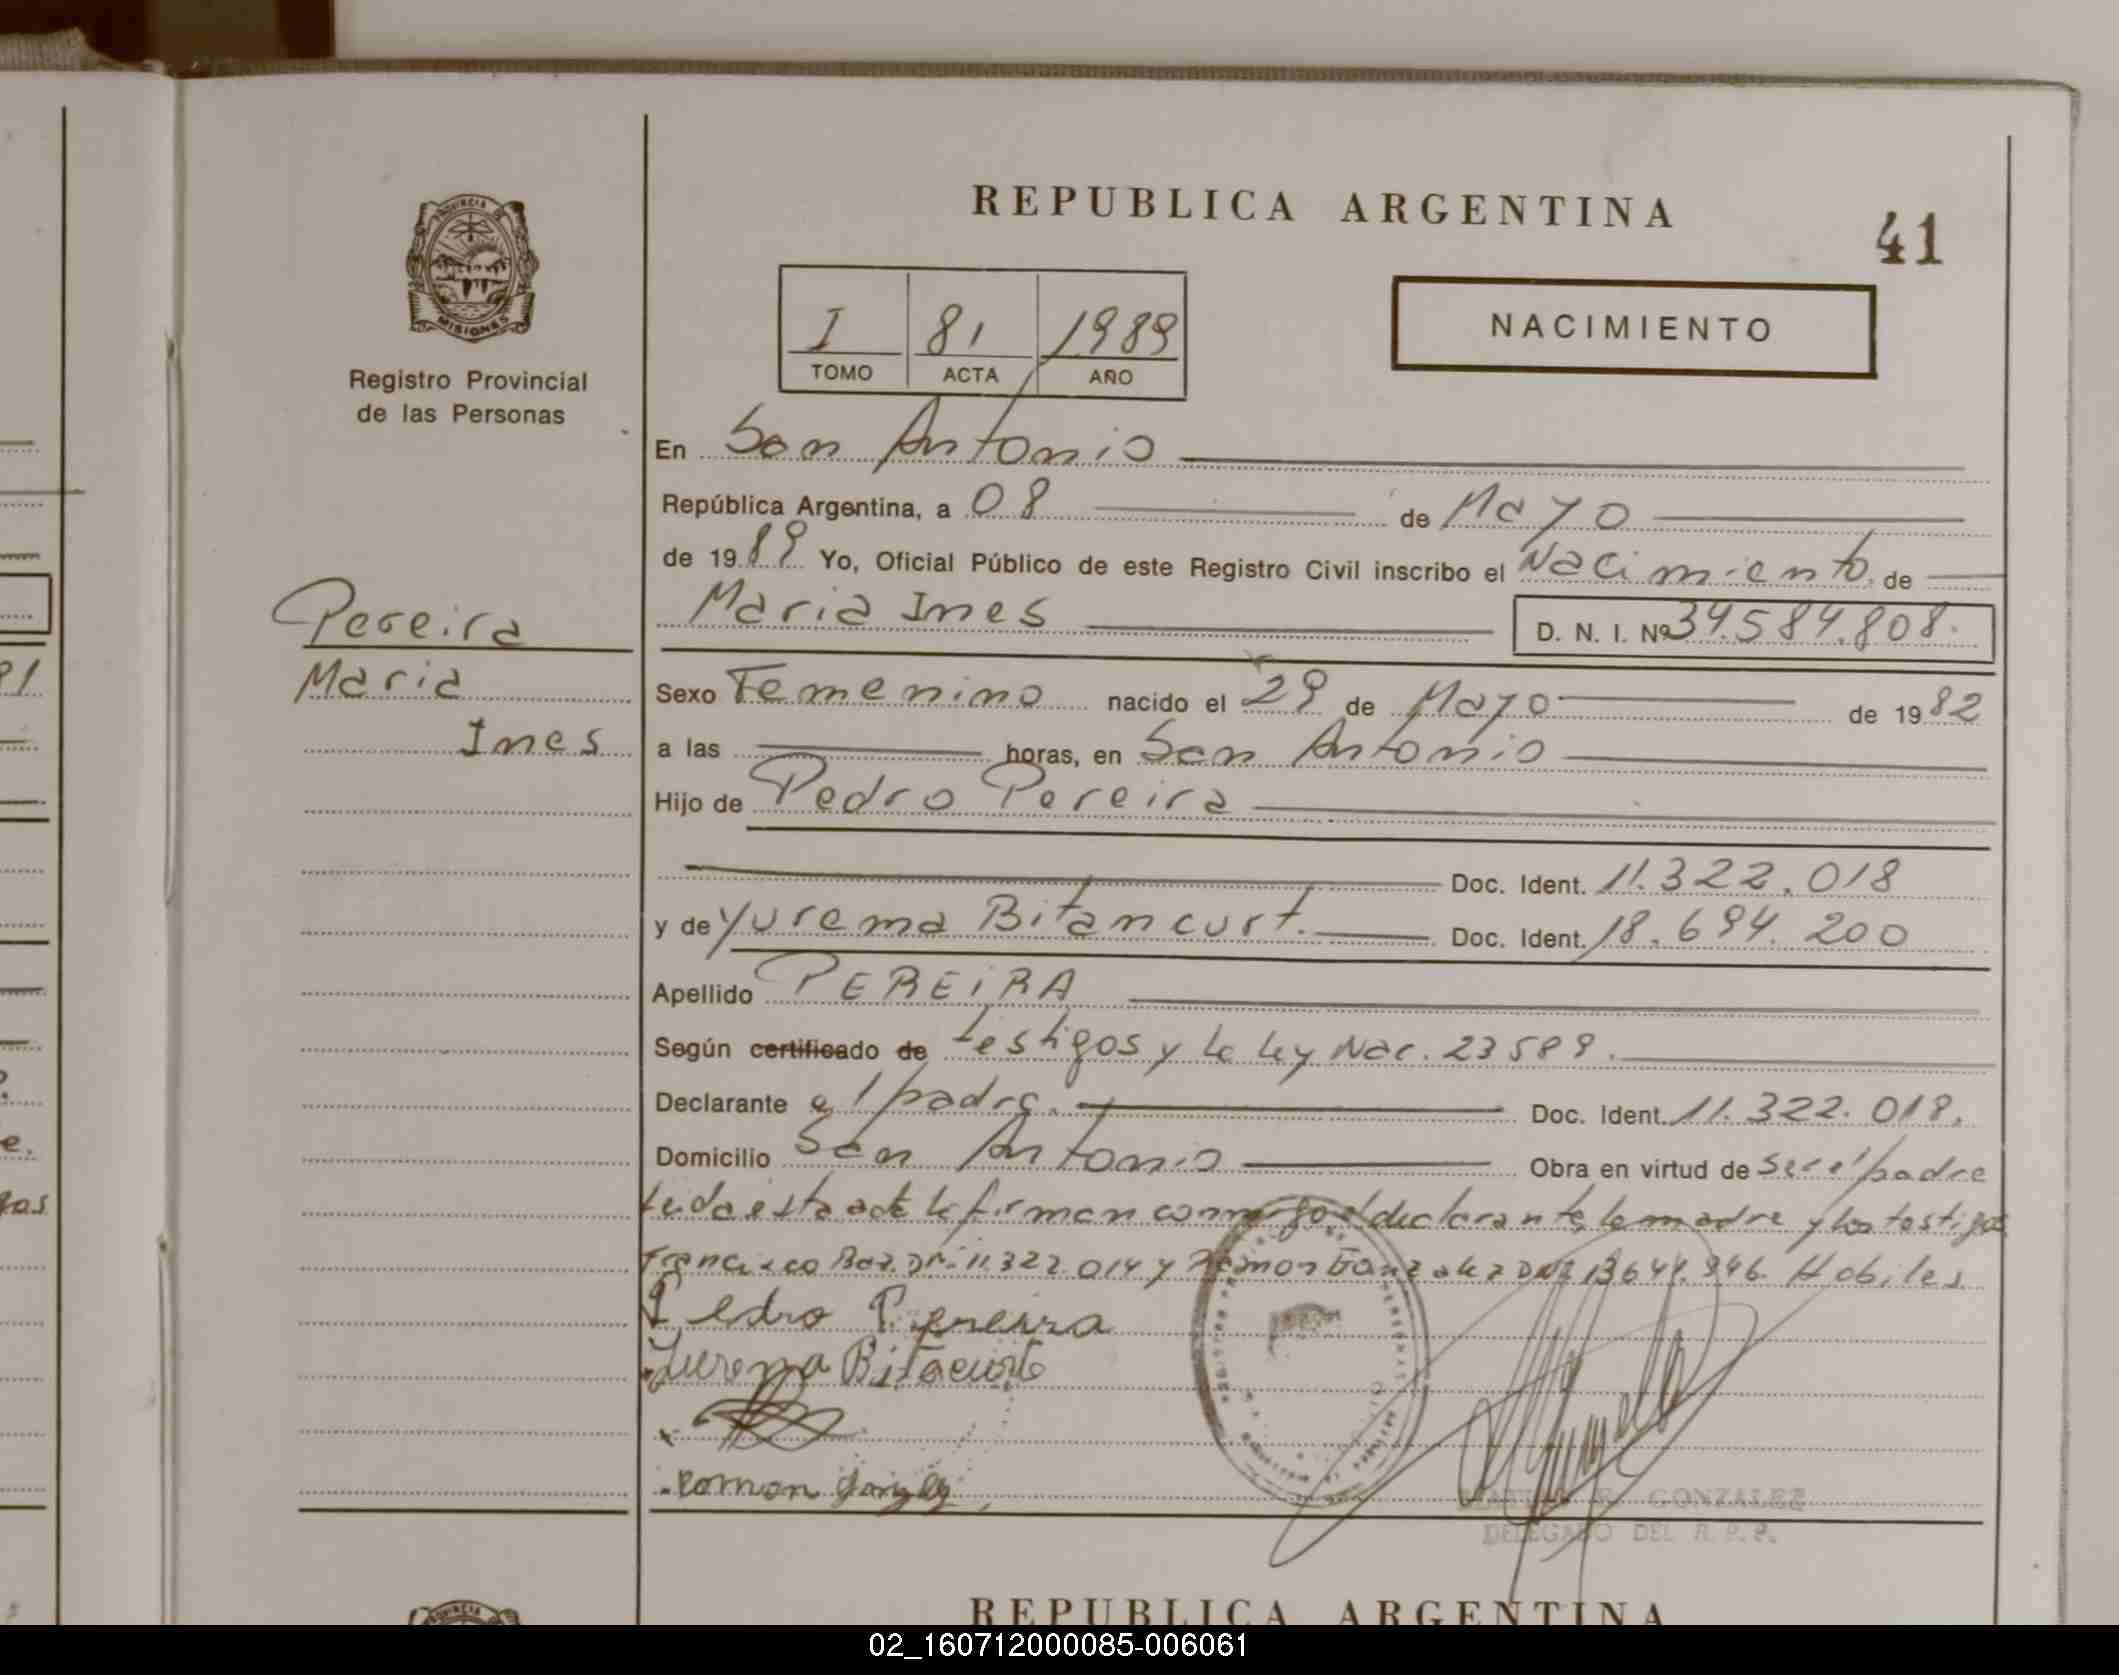 REPUBLICA ARGENTINA
41
PROVINCIA DE
MISIONES
Registro Provincial
de las Personas
I 81 1989
TOMO ACTA AÑO
NACIMIENTO
En San Antonio
República Argentina, a 08 de Mayo
de 1989 Yo, Oficial Público de este Registro Civil inscribo el Nacimiento de
Maria Ines D. N. I. Nº 34.584.808.
Pereira
Maria
Ines
Sexo Femenino nacido el 29 de Mayo de 1982
a las horas, en San Antonio
Hijo de Pedro Pereira
Doc. Ident. 11.322.018
y de Yurema Bitancurt. Doc. Ident. 18.694.200
Apellido PEREIRA
Según certificado de testigos y la ley Nac. 23589.
Declarante el padre. Doc. Ident. 11.322.018.
Domicilio San Antonio Obra en virtud de ser el padre
Leida esta acta la firman conmigo el declarante, la madre y los testigos
Francisco DNI. 11.322.014 y Ramon Gonzalez DNI 13644.946. Habiles
Pedro Pereira
Yurema Bitacurt
Roman
GONZALEZ
DELEGADO DEL R. P. P.
REPUBLICA ARGENTINA
02_160712000085-006061